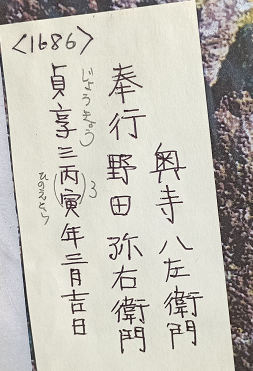 〈1686〉
奥寺八左衛門
奉行野田弥右衛門
じょうきょう
貞享三(丙寅)年三月吉日
3
ひのえとら